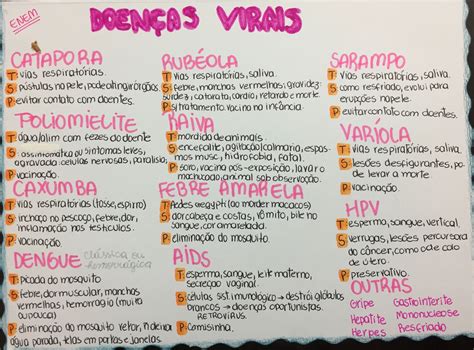 ENEM
DOENÇAS VIRAIS
CATAPORA
T vias respiratórias.
S pústulas na pele, pode atingir órgãos
P evitar contato com doentes.
POLIOMIELITE
T água/alim com fezes do doente
S assintomática ou sintomas leves,
agravada células nervosas, paralisia,
P vacinação.
CAXUMBA
T vias respiratórias (tosse, espirro)
S inchaço no pescoço, febre, dor,
inflamação nos testículos.
P vacinação.
DENGUE clássica ou
hemorrágica
T picada do mosquito
S febre, dor muscular, manchas
vermelhas, hemorragia (muito
P eliminação do mosquito vetor, n deixar
água parada, telas em portas e janelas.
RUBÉOLA
T vias respiratórias, saliva.
S febre, manchas vermelhas; gravidez:
surdez, catarata, cardio, retardo e morte.
P s/ tratamento vacina na infância.
RAIVA
T mordida de animais.
S encefalite, agitação/calmaria, espas-
mos musc, hidrofobia, fatal.
P vacina pós-exposição, lavar o
machucado, animal sob observação.
FEBRE AMARELA
T Aedes aegypti (ao morder macacos)
S dor cabeça e costas, vômito, bile no
sangue, cor amarelada.
P eliminação do mosquito.
AIDS
T esperma, sangue, leite materno,
secreção vaginal.
S células sist. imunológico → destrói glóbulos
brancos → doenças oportunistas.
RETROVÍRUS.
P camisinha.
SARAMPO
T vias respiratórias, saliva.
S como resfriado, evolui para
erupções na pele.
P evitar contato com doentes.
VARIOLA
T vias respiratórias, saliva.
S lesões desfigurantes, po-
de levar a morte
P vacinação.
HPV
T esperma, sangue, vertical.
S verrugas, lesões percursoras
do câncer, como o de colo
de útero.
P preservativo.
OUTRAS
Gripe Gastrointerite
Hepatite Mononucleose
Herpes Resfriado